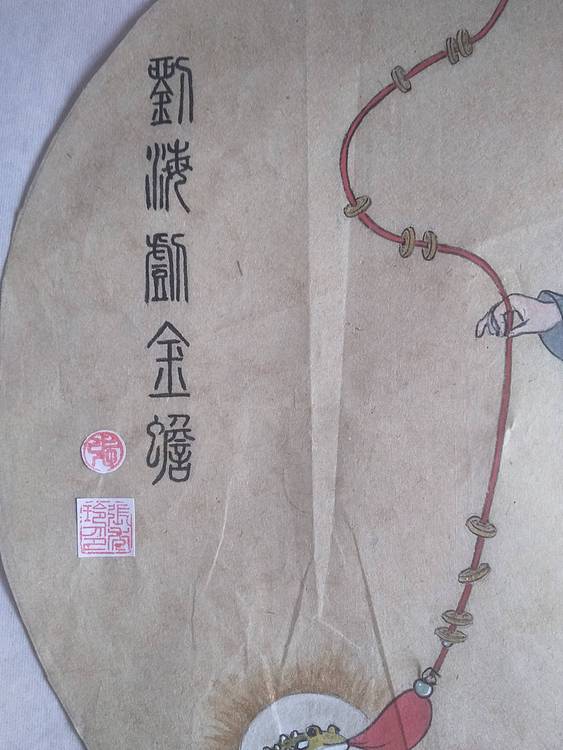 劉海戲金蟾